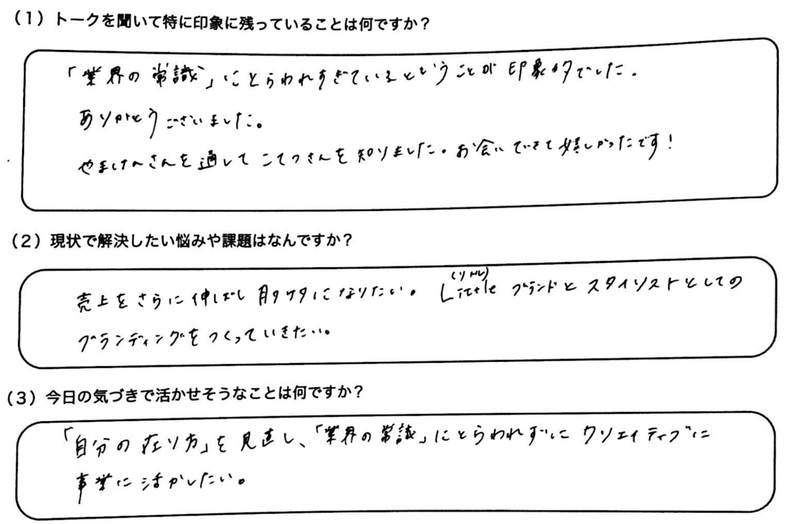 （1）トークを聞いて特に印象に残っていることは何ですか？
「業界の常識」にとらわれすぎているということが印象的でした。
ありがとうございました。
やましけんさんを通してこてつさんを知りました。お会いできて嬉しかったです！
（2）現状で解決したい悩みや課題はなんですか？
売上をさらに伸ばし月7ケタになりたい。Little(リトル)ブランドとスタイリストとしての
ブランディングをつくっていきたい。
（3）今日の気づきで活かせそうなことは何ですか？
「自分の在り方」を見直し、「業界の常識」にとらわれずにクリエイティブに
事業に活かしたい。